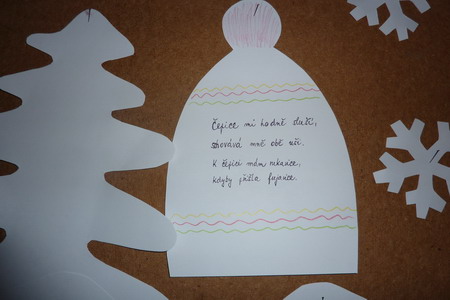 Čepice mi hodně sluší,
schovává mně obě uši.
K čepici mám rukavice,
kdyby přišla fujavice.